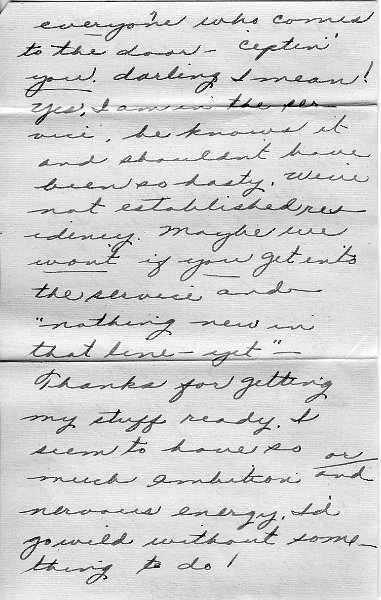 everyone who comes
to the door - 'ceptin'
you, darling I mean!
Yes, I am in the ser-
vice, he knows it
and shouldn't have
been so hasty. We've
not established res-
idency. Maybe we
won't if you get into
the service and
"nothing new in
that line - yet" -
Thanks for getting
my stuff ready. I
seem to have so
much ambition and/or
nervous energy, I'd
go wild without some-
thing to do!